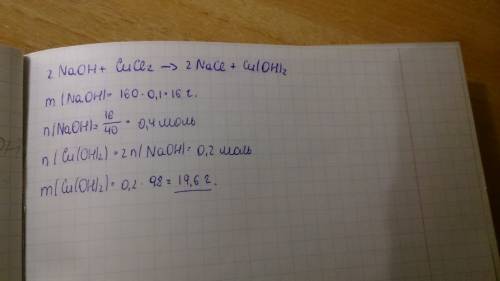 2 NaOH + CuCl₂ → 2 NaCl + Cu(OH)₂
m(NaOH) = 160 · 0,1 = 16 г.
n(NaOH) = 16/40 = 0,4 моль
n(Cu(OH)₂) = 2n(NaOH) = 0,2 моль
m(Cu(OH)₂) = 0,2 · 98 = 19,6 г.